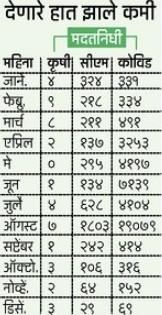 देणारे हात झाले कमी
मदतनिधी
महिना कृषी सीएम कोविड
जाने. ४ ३२४ ३३१
फेब्रु. ९ २१८ ३३४
मार्च ८ २११ ४९१
एप्रिल २ १३७ ३२५३
मे ० २९५ ४१९७
जून १ १३४ ७१३९
जुलै ४ ६२८ ४१०४
ऑगस्ट ७ १८०३ १९०७९
सप्टेंबर १ २४२ ४१४
ऑक्टो. ३ १०६ ३१६
नोव्हें. २ ६४ १५२
डिसें. ३ २९ ६९